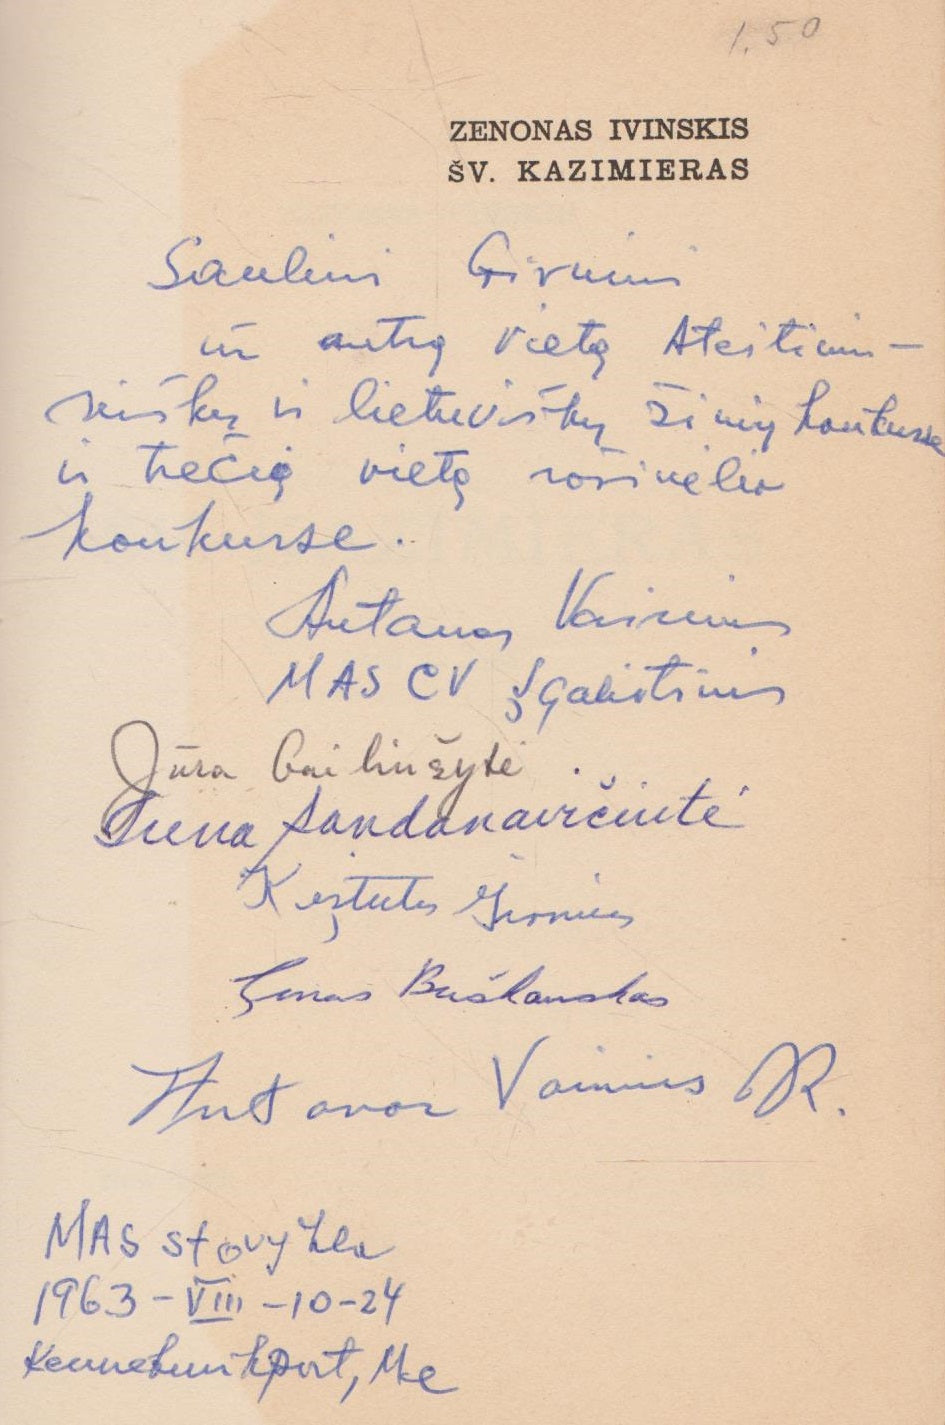 1.50
ZENONAS IVINSKIS
ŠV. KAZIMIERAS
Sauliui Girniui
už antrą vietą Ateitinin-
kiškų ir lietuviškų žinių konkurse
ir trečią vietą rašinėlio
konkurse.
Antanas Vainius
MAS CV Įgaliotinis
Jūra Gailiušytė
Irena Sandanavičiutė
Kęstutis Girnius
Linas Bučkauskas
Antanas Vainius JR.
MAS stovykla
1963-VIII-10-24
Kennebunkport, Me